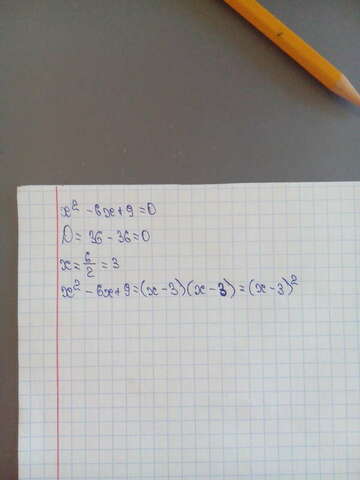 x² - 6x + 9 = 0
D = 36 - 36 = 0
x = 6/2 = 3
x² - 6x + 9 = (x - 3)(x - 3) = (x - 3)²